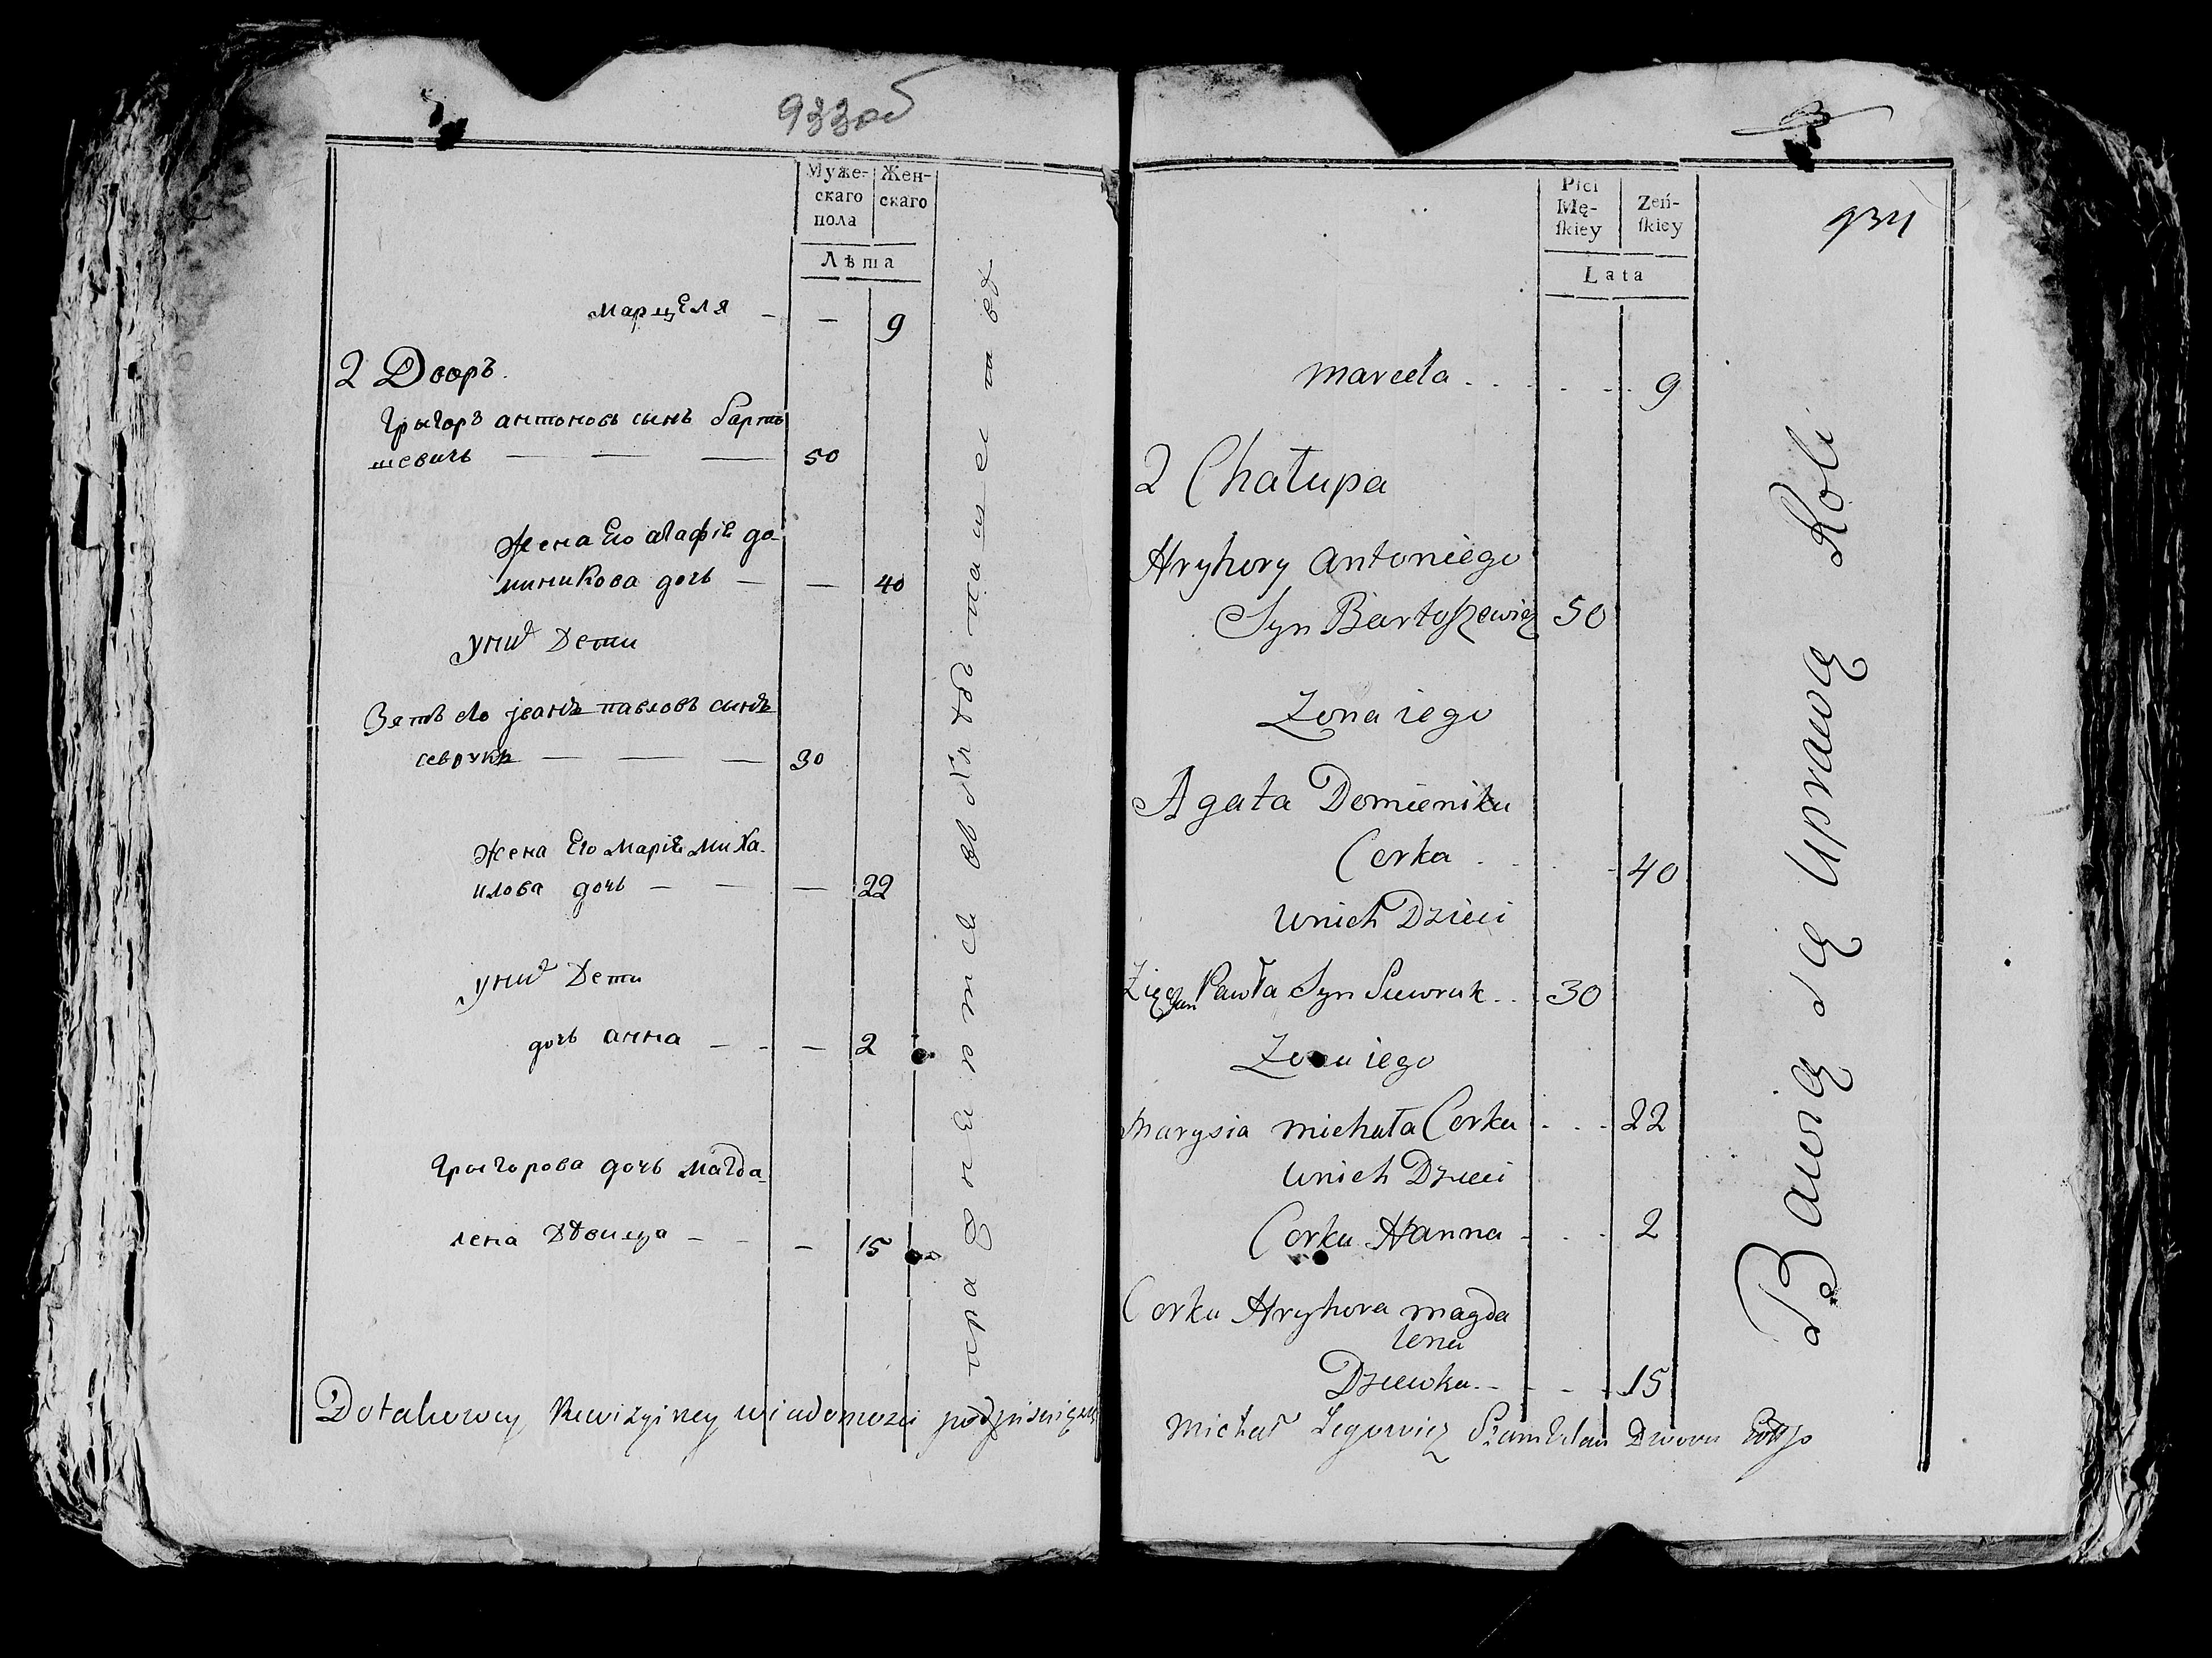 933об
Муже-
скаго
пола
Жен-
скаго
Лѣта
Марцеля — — 9
2 Дворъ.
Григоръ антоновъ сынъ барто
шевичъ — — — 50
Жена Его агафiя до-
миникова дочь — — 40
У них Дети
Зять его јванъ павловъ сынъ
севрукъ — — — 30
Жена Его Марiя Миха-
илова дочь — — — 22
У них Дети
дочь анна — - — 2
Григорова дочь Магда-
лена Двѣвица - - — 15
Dotakowey Rewizyiney wiadomosci podpisuię się
934
Płci
Mę-
ſkiey
Zeń-
ſkiey
Lata
Marcela . . . - - . 9
2 Chałupa
Hryhory Antoniego
Syn Bartoszewicz 50
Zona iego
Agata Domienika
Corka . . . - 40
Unich Dzieci
Zięć Jan Pawła Syn Siewruk . . 30
Zona iego
Marysia Michała Corka . . . 22
Unich Dzieci
Corka Hanna - . . 2
Corka Hryhora Magda
lena
Dziewka - - - - 15
Bawią się Uprawą Roli
Michał Szambelan Dworu